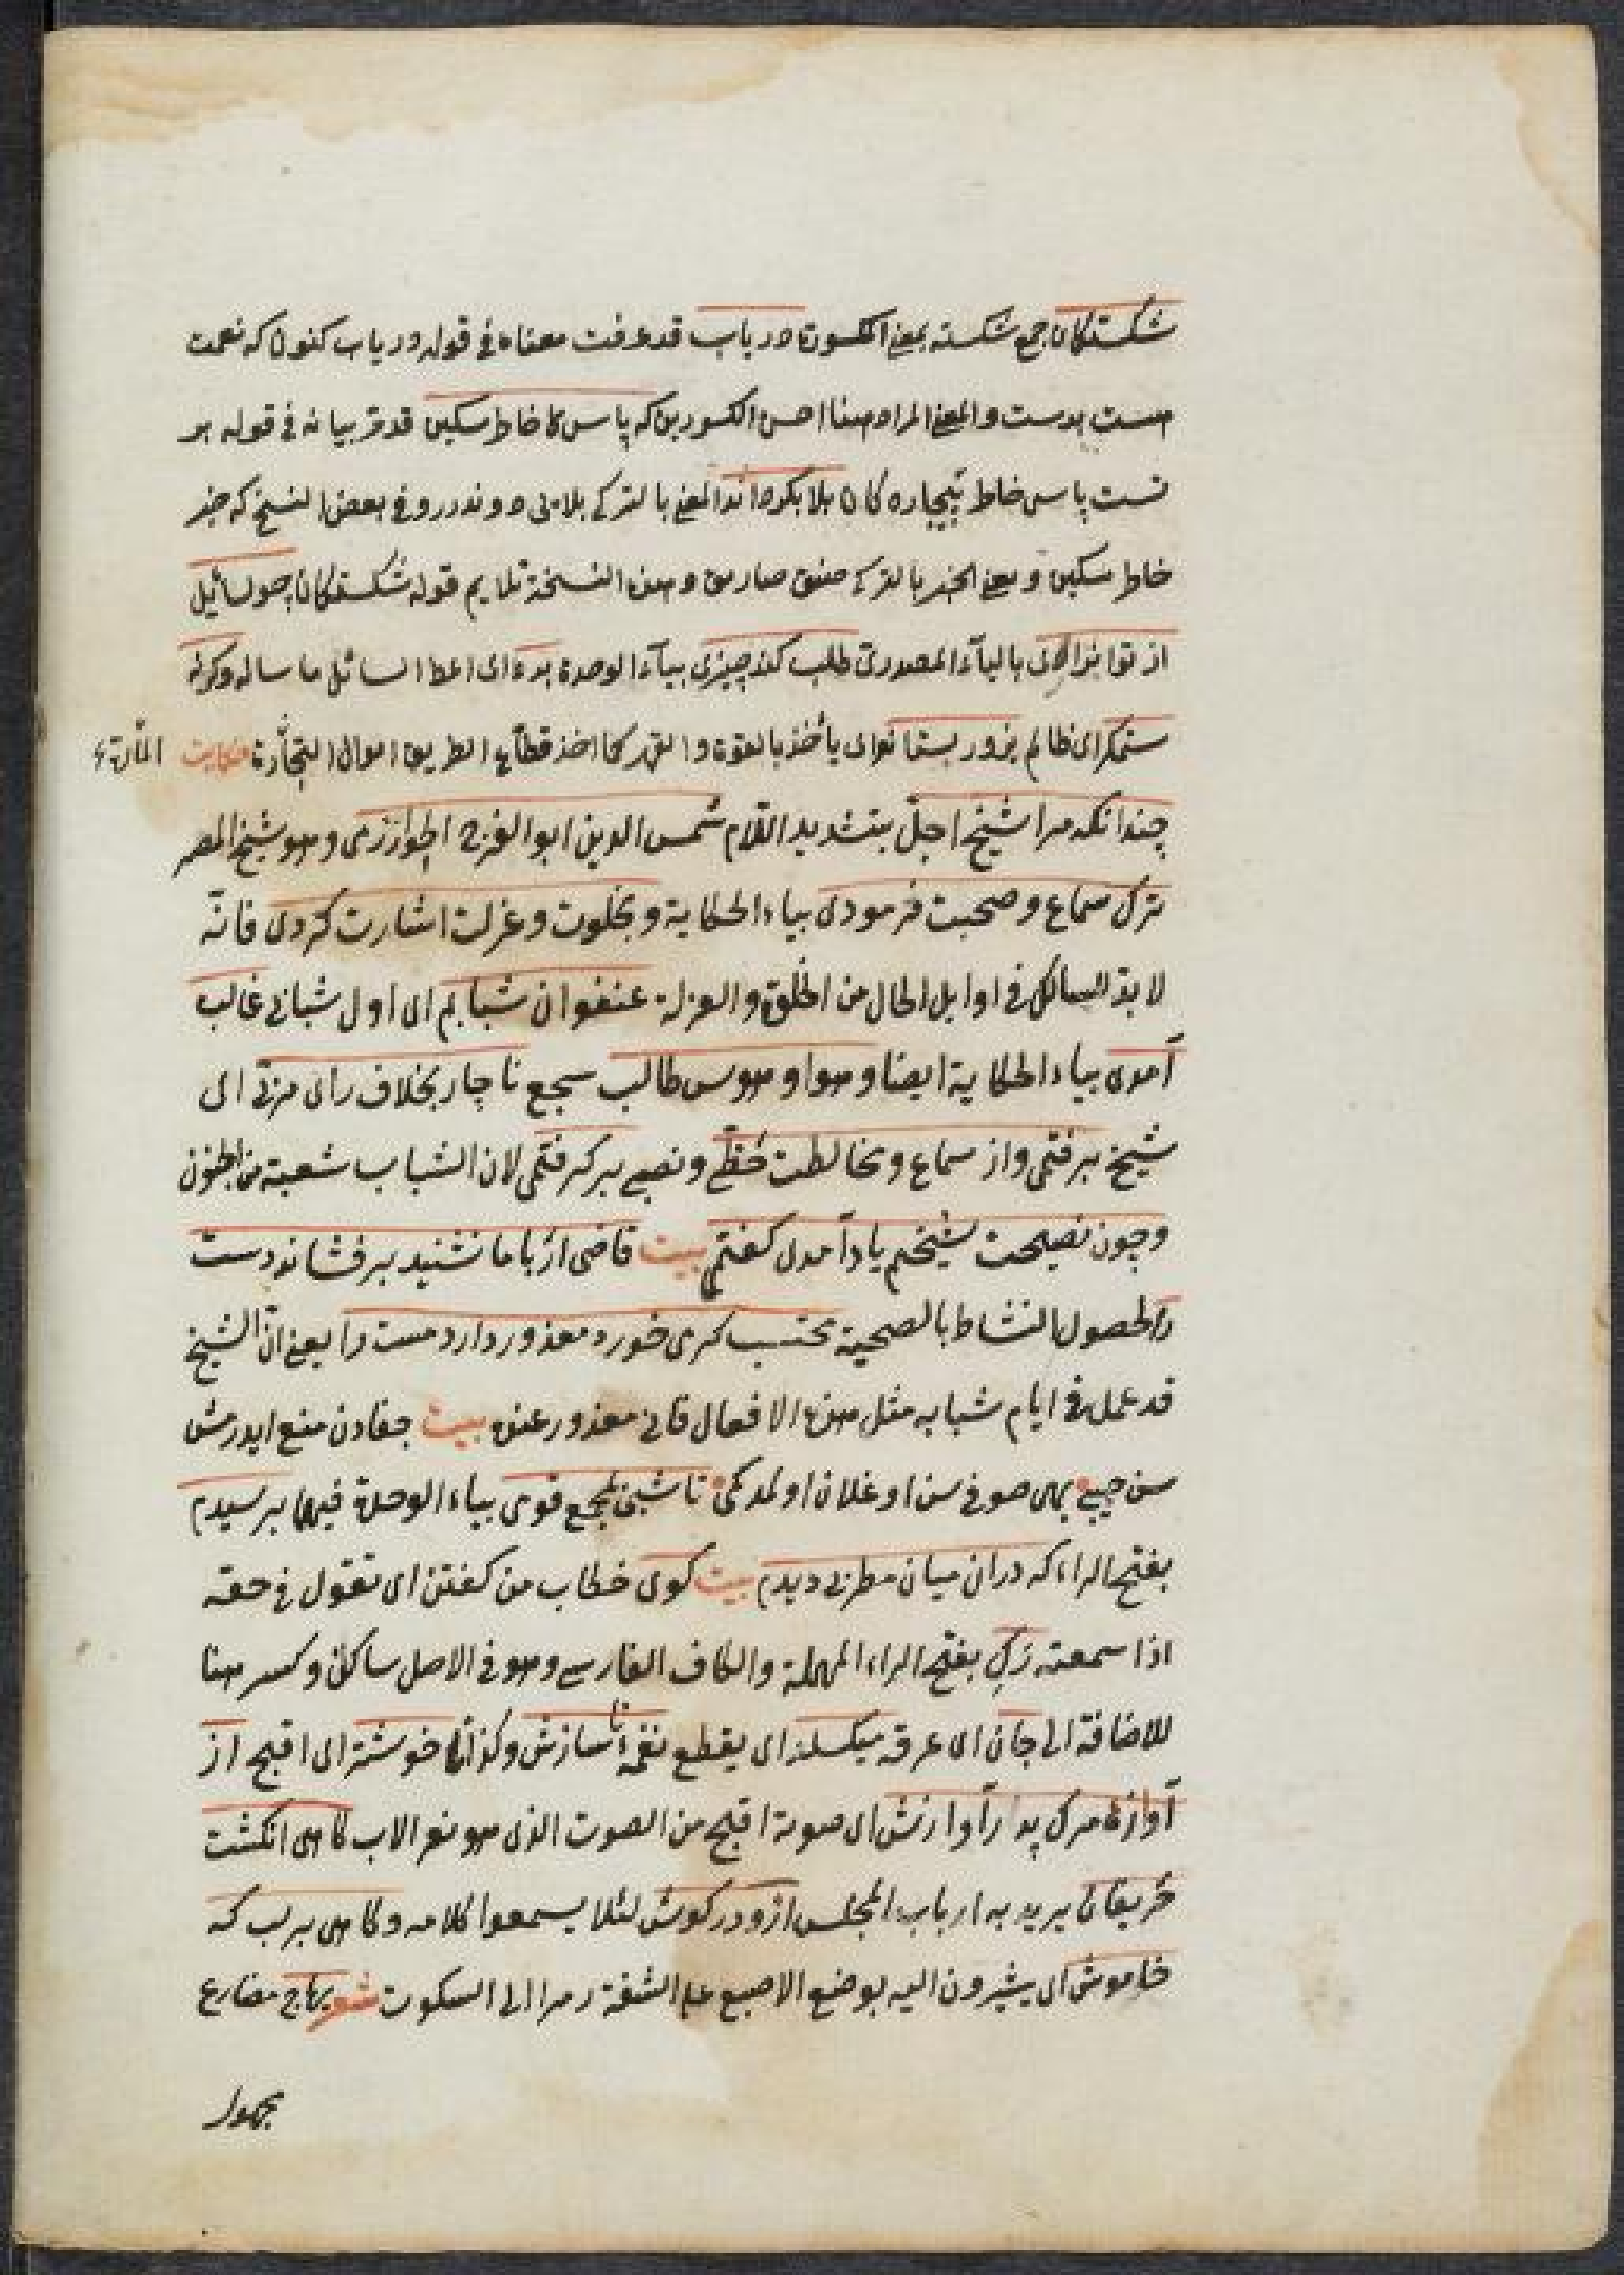 شكستكان جمع شكسته بمعنى المكسورة درياب قد عرفت معناه في قوله درياب كنون كه نعمت
هست بدست والمعنى المراد هنا احسن المكسورين كه پاس خاطر مسكين قد مر بيانه في قوله بر
تست پاس خاطر بيچاره كان بلا بكرداند المعنى بالتركي بلايى دوندرر وفي بعض النسخ كه جبر
خاطر مسكين ومعنى الجبر بالتركي صنق صارمق وهذه النسخة تلايم قوله شكستكان چو سائل
از تو بزارى بالياء المصدرى طلب كند چيزى بياء الوحدة بده اى اعط السائل ما ساله وكرنه
ستمكر اى ظالم بزور بستاند اى يأخذ بالقوة والقهر كما اخذ قطاع الطريق اموال التجارة حكايت المارة
چندانكه مرا شيخ اجل بتشديد اللام شمس الدين ابو الفرج الجوزى وهو شيخ المص
ترك سماع وصحبت فرمودى بياء الحكاية وبخلوت وعزلت اشارت كردى فانه
لا بد للسالك في اوايل الحال من الخلوة والعزلة عنفوان شبابم اى اول شبابى غالب
آمدى بياء الحكاية ايضا وهوا وهوس طالب سجع ناچار بخلاف راى مربى اى
شيخ برفتمى واز سماع ومخالطت حظى ونصيبى بركرفتمى لان الشباب شعبة من الجنون
وچون نصيحت شيخم ياد آمدى كفتمى بيت قاضى ار با ما نشيند بر فشاند دست
را لحصول النشاط بالصحبة محتسب كر مى خورد معذور دارد مست را يعنى ان الشيخ
قد عمل في ايام شبابه مثل هذه الافعال فانى معذور عنده بيت جفادن منع ايدرمش
سن حبيبى بهى صوفى سن اوغلان اولمدكمى تا شبى بمجمع قومى بياء الوحدة فيهما برسيدم
بفتح الراء كه دران ميان مطربى ديدم بيت كوى خطاب من كفتن اى تقول في حقه
اذا سمعته رك بفتح الراء المهملة والكاف الفارسى وهو في الاصل ساكن وكسر هنا
للاضافة الى جان اى عرقه ميكسلد اى يقطع نغمهء ناسازش وكذا ناخوشتر اى اقبح از
آوازهء مرك پدر آوازش اى صوته اقبح من الصوت الذى هو نعى الاب كاهى انكشت
حريفان يريد به ارباب المجلس ازو در كوش لئلا يسمعوا كلامه وكاهى بر لب كه
خاموش اى يشيرون اليه بوضع الاصبع على الشفة رمزا الى السكوت شعر يهاج مضارع
مجهول